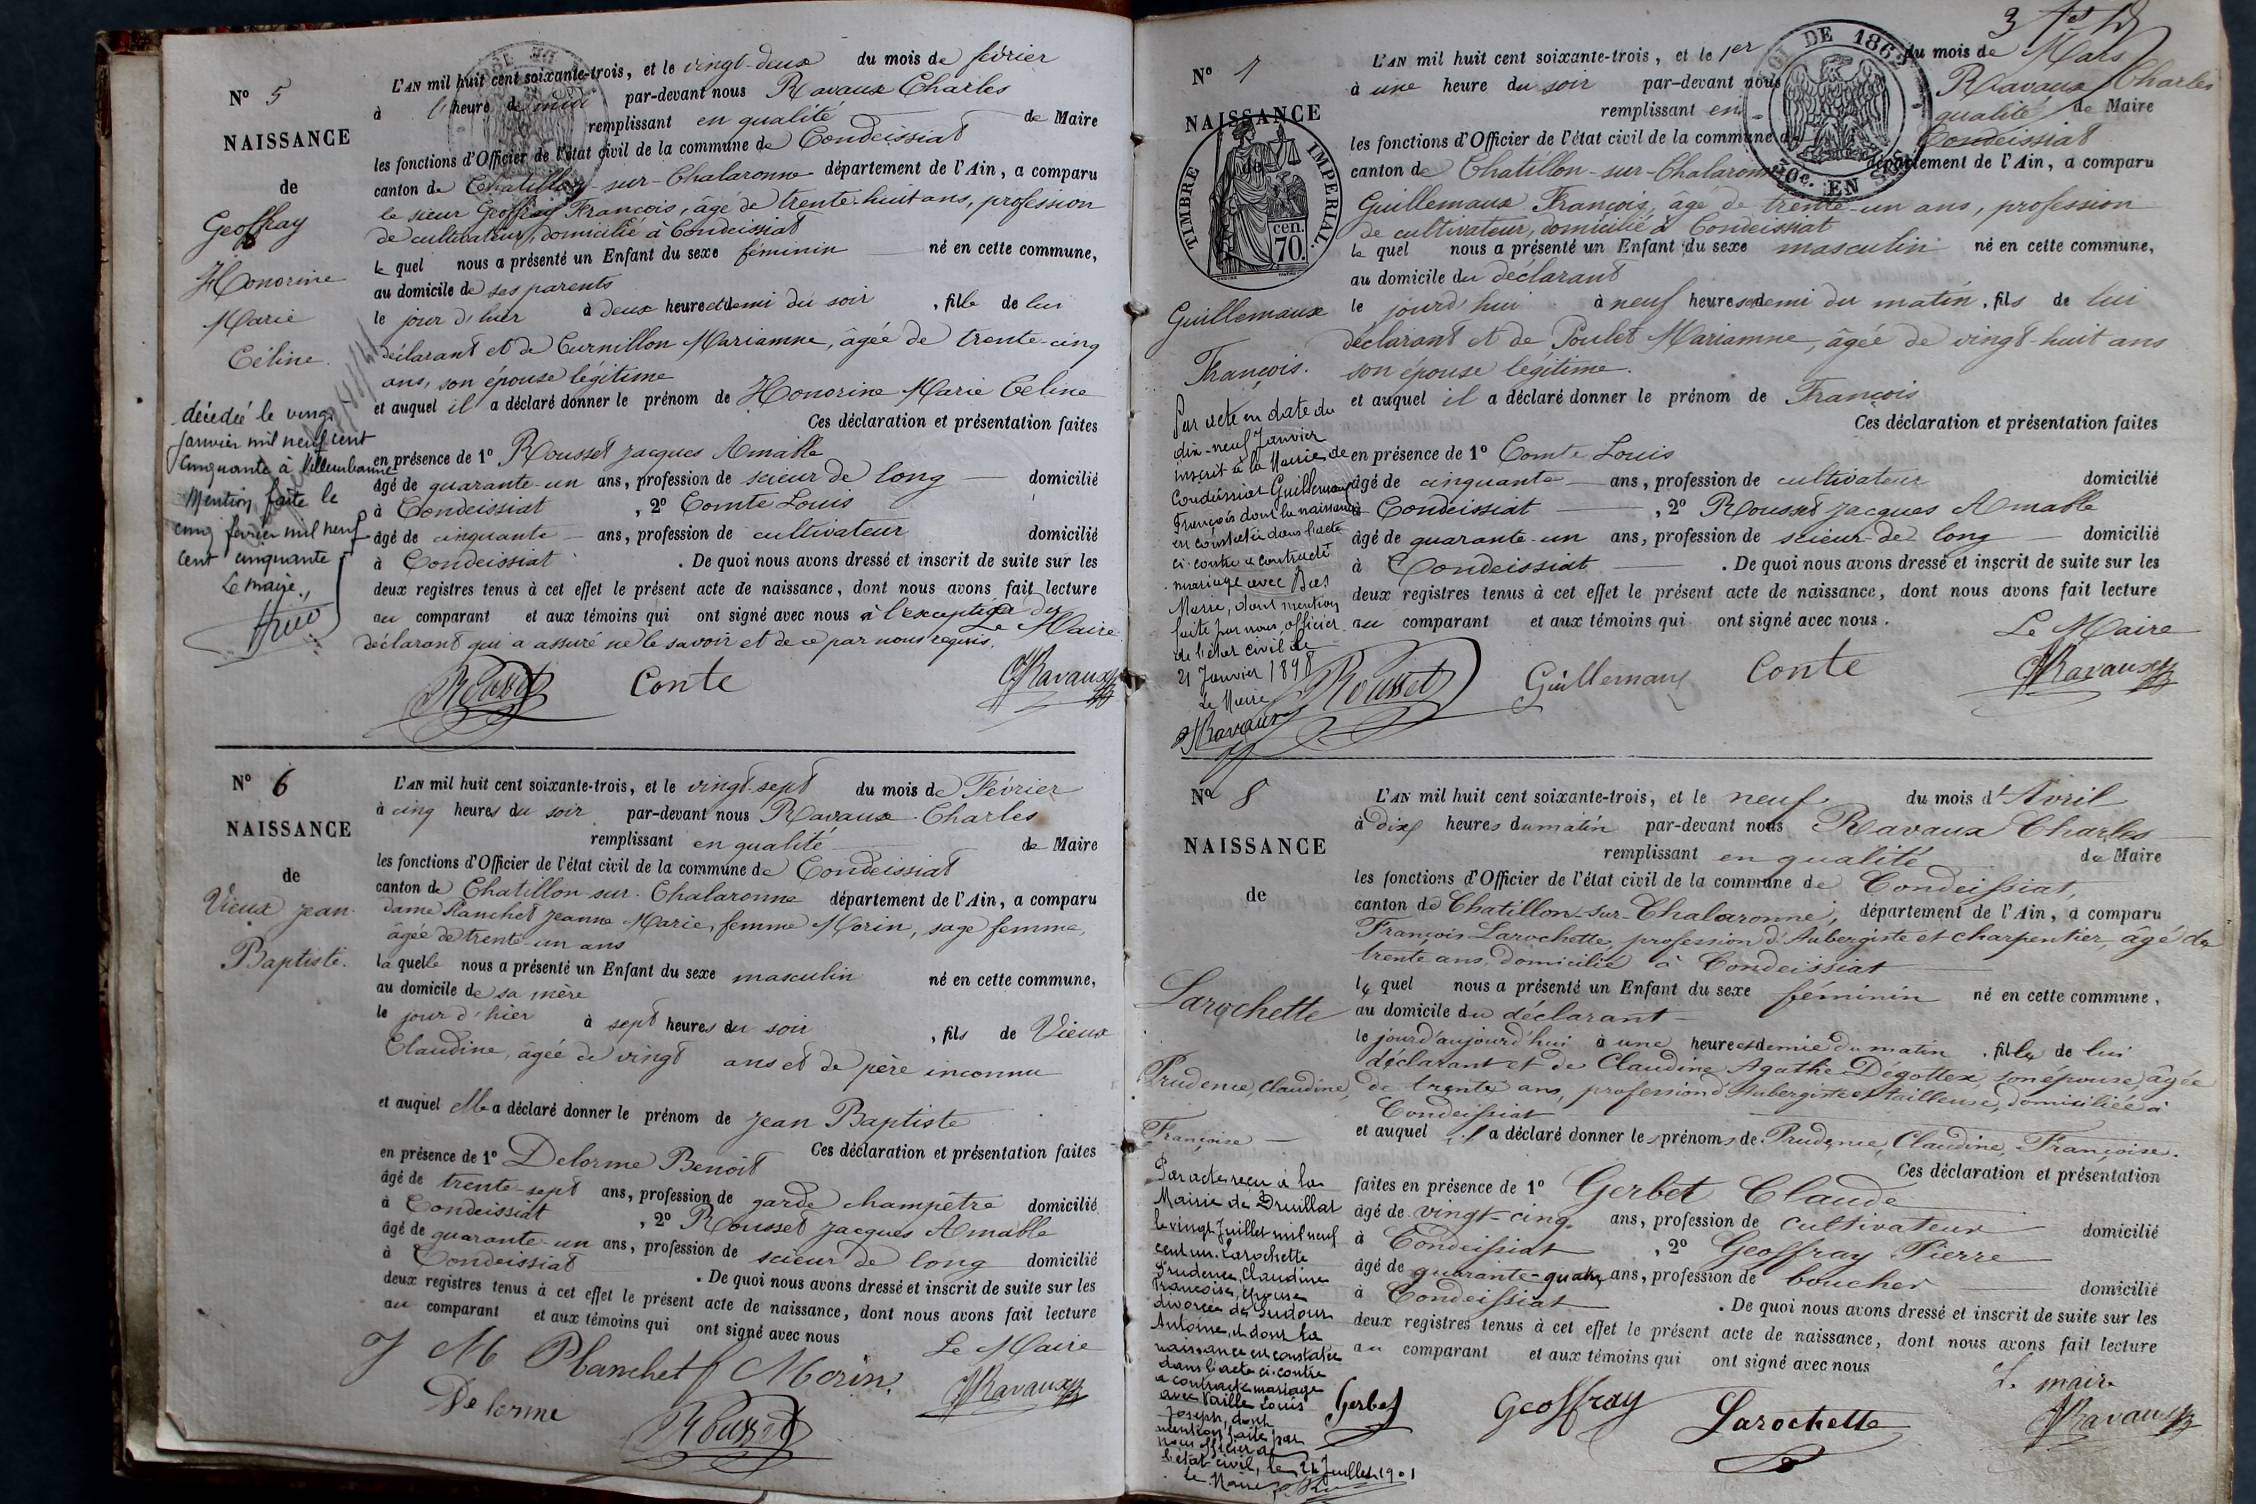 N° 5
NAISSANCE
de
Geoffray
Honorine
Marie
Céline.
décédée le vingt
janvier mil neuf cent
cinquante à Villeurbanne
Mention faite le
cinq février mil neuf
cent cinquante
Le maire,
L'AN mil huit cent soixante-trois, et le vingt-deux du mois de février
à l'heure de midi par-devant nous Ravaux Charles
remplissant en qualité de Maire
les fonctions d'Officier de l'état civil de la commune de Condeissiat
canton de Chatillon-sur-Chalaronne département de l'Ain, a comparu
le sieur Geoffray François, âgé de trente-huit ans, profession
de cultivateur, domicilié à Condeissiat
le quel nous a présenté un Enfant du sexe féminin né en cette commune,
au domicile de ses parents
le jour d'hier à deux heures et demi du soir, fille de lui
déclarant et de Curnillon Marianne, âgée de trente-cinq
ans, son épouse légitime
et auquel il a déclaré donner le prénom de Honorine Marie Céline
Ces déclaration et présentation faites
en présence de 1° Rousset Jacques Amable
âgé de quarante-un ans, profession de scieur de long domicilié
à Condeissiat, 2° Comte Louis
âgé de cinquante ans, profession de cultivateur domicilié
à Condeissiat. De quoi nous avons dressé et inscrit de suite sur les
deux registres tenus à cet effet le présent acte de naissance, dont nous avons fait lecture
au comparant et aux témoins qui ont signé avec nous à l'exception du
déclarant qui a assuré ne le savoir et de ce par nous requis. Le Maire
Rousset Conte Ravaux
N° 6
NAISSANCE
de
Vieux Jean
Baptiste.
L'AN mil huit cent soixante-trois, et le vingt-sept du mois de Février
à cinq heures du soir par-devant nous Ravaux Charles
remplissant en qualité de Maire
les fonctions d'Officier de l'état civil de la commune de Condeissiat
canton de Chatillon-sur-Chalaronne département de l'Ain, a comparu
dame Planchet Jeanne Marie, femme Morin, sage femme,
âgée de trente-un ans
la quelle nous a présenté un Enfant du sexe masculin né en cette commune,
au domicile de sa mère
le jour d'hier à sept heures du soir, fils de Vieux
Claudine, âgée de vingt ans et de père inconnu
et auquel elle a déclaré donner le prénom de Jean Baptiste
Ces déclaration et présentation faites
en présence de 1° Delorme Benoit
âgé de trente-sept ans, profession de garde champêtre domicilié
à Condeissiat, 2° Rousset Jacques Amable
âgé de quarante-un ans, profession de scieur de long domicilié
à Condeissiat. De quoi nous avons dressé et inscrit de suite sur les
deux registres tenus à cet effet le présent acte de naissance, dont nous avons fait lecture
au comparant et aux témoins qui ont signé avec nous
Le Maire
J M Planchet f Morin. Ravaux
Delorme Rousset
N° 7
NAISSANCE
de
TIMBRE IMPERIAL.
70 cen.
Guillemaux
François.
Par acte en date du
dix-neuf Janvier
inscrit à la Mairie de
Condeissiat Guillemaux
François dont la naissance
est constatée dans l'acte
ci-contre a contracté
mariage avec
Marie, dont mention
faite par nous, officier
de l'état civil le
21 Janvier 1898
Le Maire
Ravaux
LOI DE 1862
EN SUS
L'AN mil huit cent soixante-trois, et le 1er du mois de Mars
à une heure du soir par-devant nous Ravaux Charles
remplissant en qualité de Maire
les fonctions d'Officier de l'état civil de la commune de Condeissiat
canton de Chatillon-sur-Chalaronne département de l'Ain, a comparu
Guillemaux François, âgé de trente-un ans, profession
de cultivateur, domicilié à Condeissiat
le quel nous a présenté un Enfant du sexe masculin né en cette commune,
au domicile du déclarant
le jourd'hui à neuf heures et demi du matin, fils de lui
déclarant et de Poulet Marianne, âgée de vingt-huit ans
son épouse légitime.
et auquel il a déclaré donner le prénom de François
Ces déclaration et présentation faites
en présence de 1° Comte Louis
âgé de cinquante ans, profession de cultivateur domicilié
à Condeissiat, 2° Rousset Jacques Amable
âgé de quarante-un ans, profession de scieur de long domicilié
à Condeissiat. De quoi nous avons dressé et inscrit de suite sur les
deux registres tenus à cet effet le présent acte de naissance, dont nous avons fait lecture
au comparant et aux témoins qui ont signé avec nous.
Le Maire
Rousset Guillemaux Conte Ravaux
N° 8
NAISSANCE
de
Larochette
Prudence, Claudine,
Françoise
Par acte reçu à la
Mairie de Druillat
le vingt Juillet mil neuf
cent un Larochette
Prudence, Claudine
Françoise, épouse
divorcée de Sudour
Antoine, et dont la
naissance est constatée
dans l'acte ci-contre
a contracté mariage
avec Vaille Louis
Joseph, dont
mention faite par
nous officier de
l'état civil, le 24 Juillet 1901
Le Maire
L'AN mil huit cent soixante-trois, et le neuf du mois d'Avril
à dix heures du matin par-devant nous Ravaux Charles
remplissant en qualité de Maire
les fonctions d'Officier de l'état civil de la commune de Condeissiat,
canton de Chatillon-sur-Chalaronne, département de l'Ain, a comparu
François Larochette, profession d'Aubergiste et charpentier, âgé de
trente ans, domicilié à Condeissiat
le quel nous a présenté un Enfant du sexe féminin né en cette commune,
au domicile du déclarant
le jourd'aujourd'hui à une heure et demie du matin, fille de lui
déclarant et de Claudine Agathe Dégottex, son épouse, âgée
de trente ans, profession d'Aubergiste et tailleuse, domiciliée à
Condeissiat
et auquel il a déclaré donner les prénoms de Prudence, Claudine, Françoise.
Ces déclaration et présentation
faites en présence de 1° Gerbet Claude
âgé de vingt-cinq ans, profession de cultivateur domicilié
à Condeissiat, 2° Geoffray Pierre
âgé de quarante-quatre ans, profession de boucher domicilié
à Condeissiat. De quoi nous avons dressé et inscrit de suite sur les
deux registres tenus à cet effet le présent acte de naissance, dont nous avons fait lecture
au comparant et aux témoins qui ont signé avec nous
Le maire
Gerbet Geoffray Larochette Ravaux